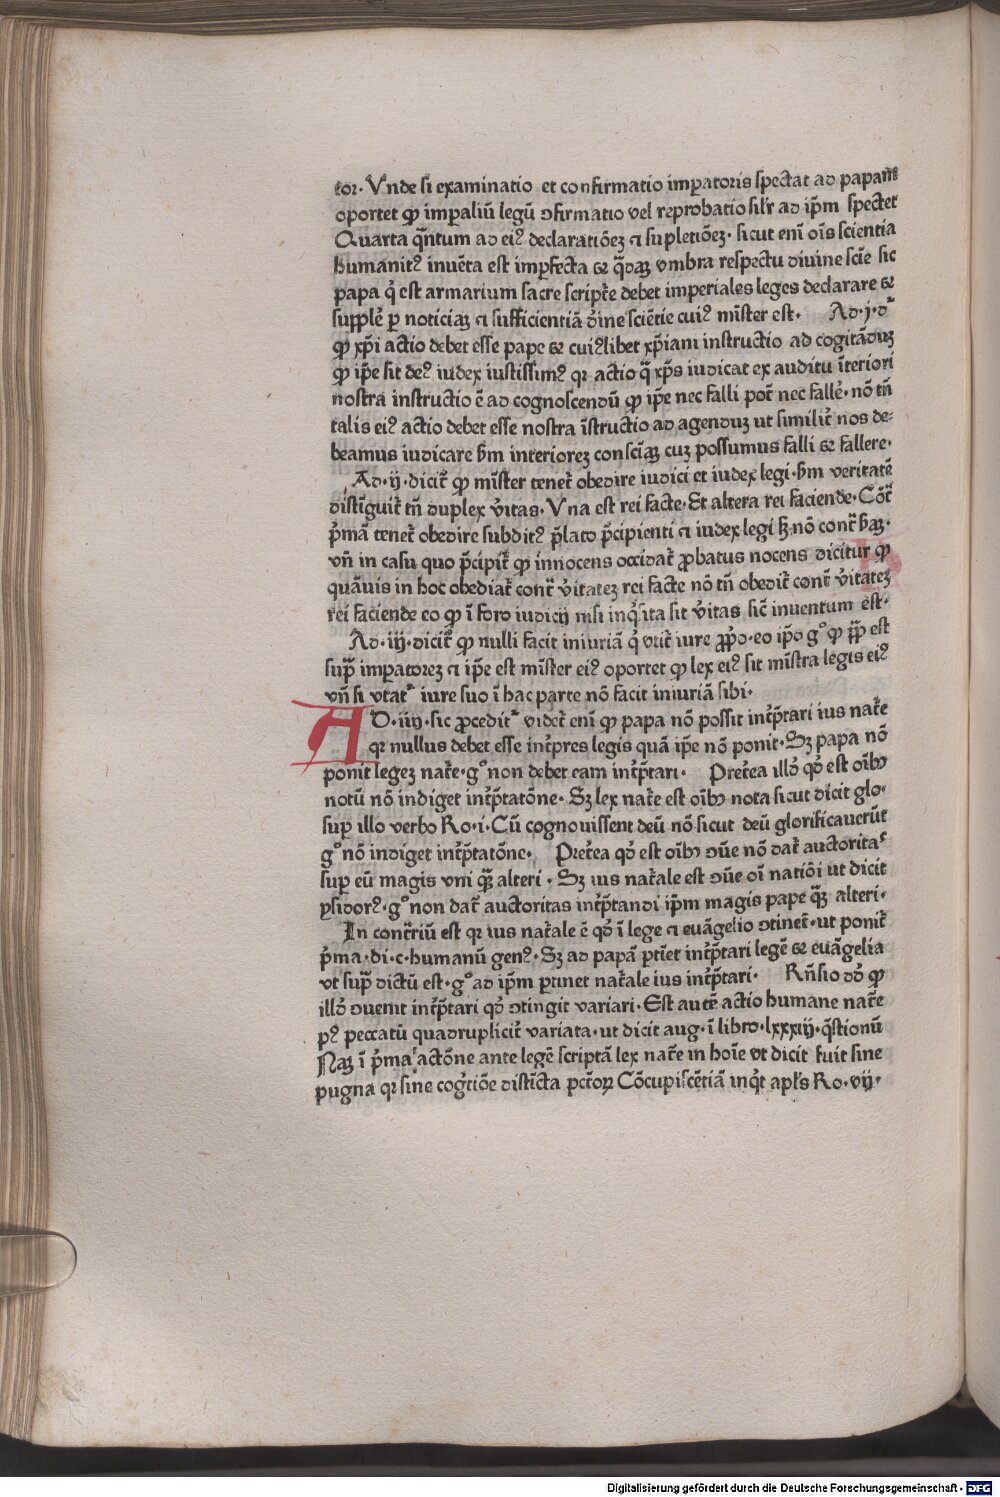 tor. Vnde si examinatio et confirmatio imꝑatoris spectat ad papam
oportet ꝙ imꝑaliū legū ↄfirmatio vel reprobatio silr̄ ad ip̄m spectet
Quarta q̄ntum ad eiꝰ declaratiōeꝫ ⁊ supletiōeꝫ. sicut enī oīs scientia
humanitꝰ invēta est imꝑfecta & q̄daꝫ vmbra respectu divine scīe sic
papa q̇ est armarium sacre script̄e debet imperiales leges declarare &
supplē ꝑ noticiaꝫ ⁊ sufficientiā d̄ine sciētie cuiꝰ mīster est. Ad.j.d̄
ꝙ xp̄i actio debet esse pape & cuiꝰlibet xp̄iani instructio ad cogitāduꝫ
ꝙ ip̄e sit deꝰ iudex iustissimꝰ qꝛ actio q̄ xp̄s iudicat ex auditu īteriori
nostra instructio ē ad cognoscendū ꝙ ip̄e nec falli pot̄ nec fallē. nō tn̄
talis eiꝰ actio debet esse nostra īstructio ad agenduꝫ ut similit̄ nos de-
beamus iudicare ẜm interioreꝫ consciaꝫ cuꝫ possumus falli & fallere.
Ad.ij.dicit̄ ꝙ mīster tenet̄ obedire iudici et iudex legi.ẜm veritatē
distīguit̄ tn̄ duplex v̄itas. Vna est rei facte. Et altera rei faciende. Cōt̄
p̄mā tenet̄ obedire subditꝰ p̄lato p̄cipienti ⁊ iudex legi sꝫ nō cont̄ ẜaꝫ.
vn̄ in casu quo p̄cipit̄ ꝙ innocens occidat̄ ꝓbatus nocens dicitur ꝙ
quāuis in hoc obediat̄ cont̄ v̄itateꝫ rei facte nō tn̄ obedit̄ cont̄ v̄itateꝫ
rei faciende eo ꝙ ī foro iudicij nisi inq̇sita sit v̄itas sic̄ inuentum est.
Ad.iij.dicit̄ ꝙ nulli facit iniuriā q̇ vtit̄ iure ꝓp̄o. eo ip̄o gͦ ꝙ pp̄ est
sup̄ imꝑatoreꝫ ⁊ ip̄e est mīster eiꝰ oportet ꝙ lex eiꝰ sit mīstra legis eiꝰ
vn̄ si vtat᷑ iure suo ī hac parte nō facit iniuriā sibi.
AD.iiij.sic ꝓcedit᷑ videt̄ enī ꝙ papa nō possit int̄p̄tari ius nat̄e
qꝛ nullus debet esse int̄pres legis quā ip̄e nō ponit. Sꝫ papa nō
ponit legeꝫ nat̄e. gͦ non debet eam int̄p̄tari. Pret̄ea illḋ qḋ est oībꝰ
notū nō indiget int̄p̄tatōne. Sꝫ lex nat̄e est oībꝰ nota sicut dicit glo.
suꝑ illo verbo Ro.i. Cū cognouissent deū nō sicut deū glorificauerūt
gͦ nō indiget int̄p̄tatōne. Pret̄ea qḋ est oībꝰ ↄūe nō dat̄ auctoritas
suꝑ eū magis vni qꝫ̄ alteri. Sꝫ ius nat̄ale est ↄūe oī natiōi ut dicit
ysidorꝰ. gͦ non dat̄ auctoritas int̄p̄tandi ip̄m magis pape qꝫ̄ alteri.
In cont̄riū est qꝛ ius nat̄ale ē qḋ ī lege ⁊ euāgelio ↄtinet̄. ut ponit̄
p̄ma.di.c.humanū genꝰ. Sꝫ ad papā ꝑtīet int̄p̄tari legē & euāgelia
vt sup̄ dictū est. gͦ ad ip̄m ꝑtinet nat̄ale ius int̄p̄tari. Rn̄sio dḋ ꝙ
illḋ ↄuenit int̄p̄tari qḋ ↄtingit variari. Est autē actio humane nat̄e
pꝰ peccatū quadruplicit̄ variata. ut dicit aug. ī libro.lxxxiij.q̄stionū
Naꝫ ī p̄ma actōne ante legē scriptā lex nat̄e in hoīe vt dicit fuit sine
pugna qꝛ sine coḡtiōe distīcta pct̄oꝝ Cōcupiscētiā inq̇t apl̄s Ro.vij.
Digitalisierung gefördert durch die Deutsche Forschungsgemeinschaft - DFG